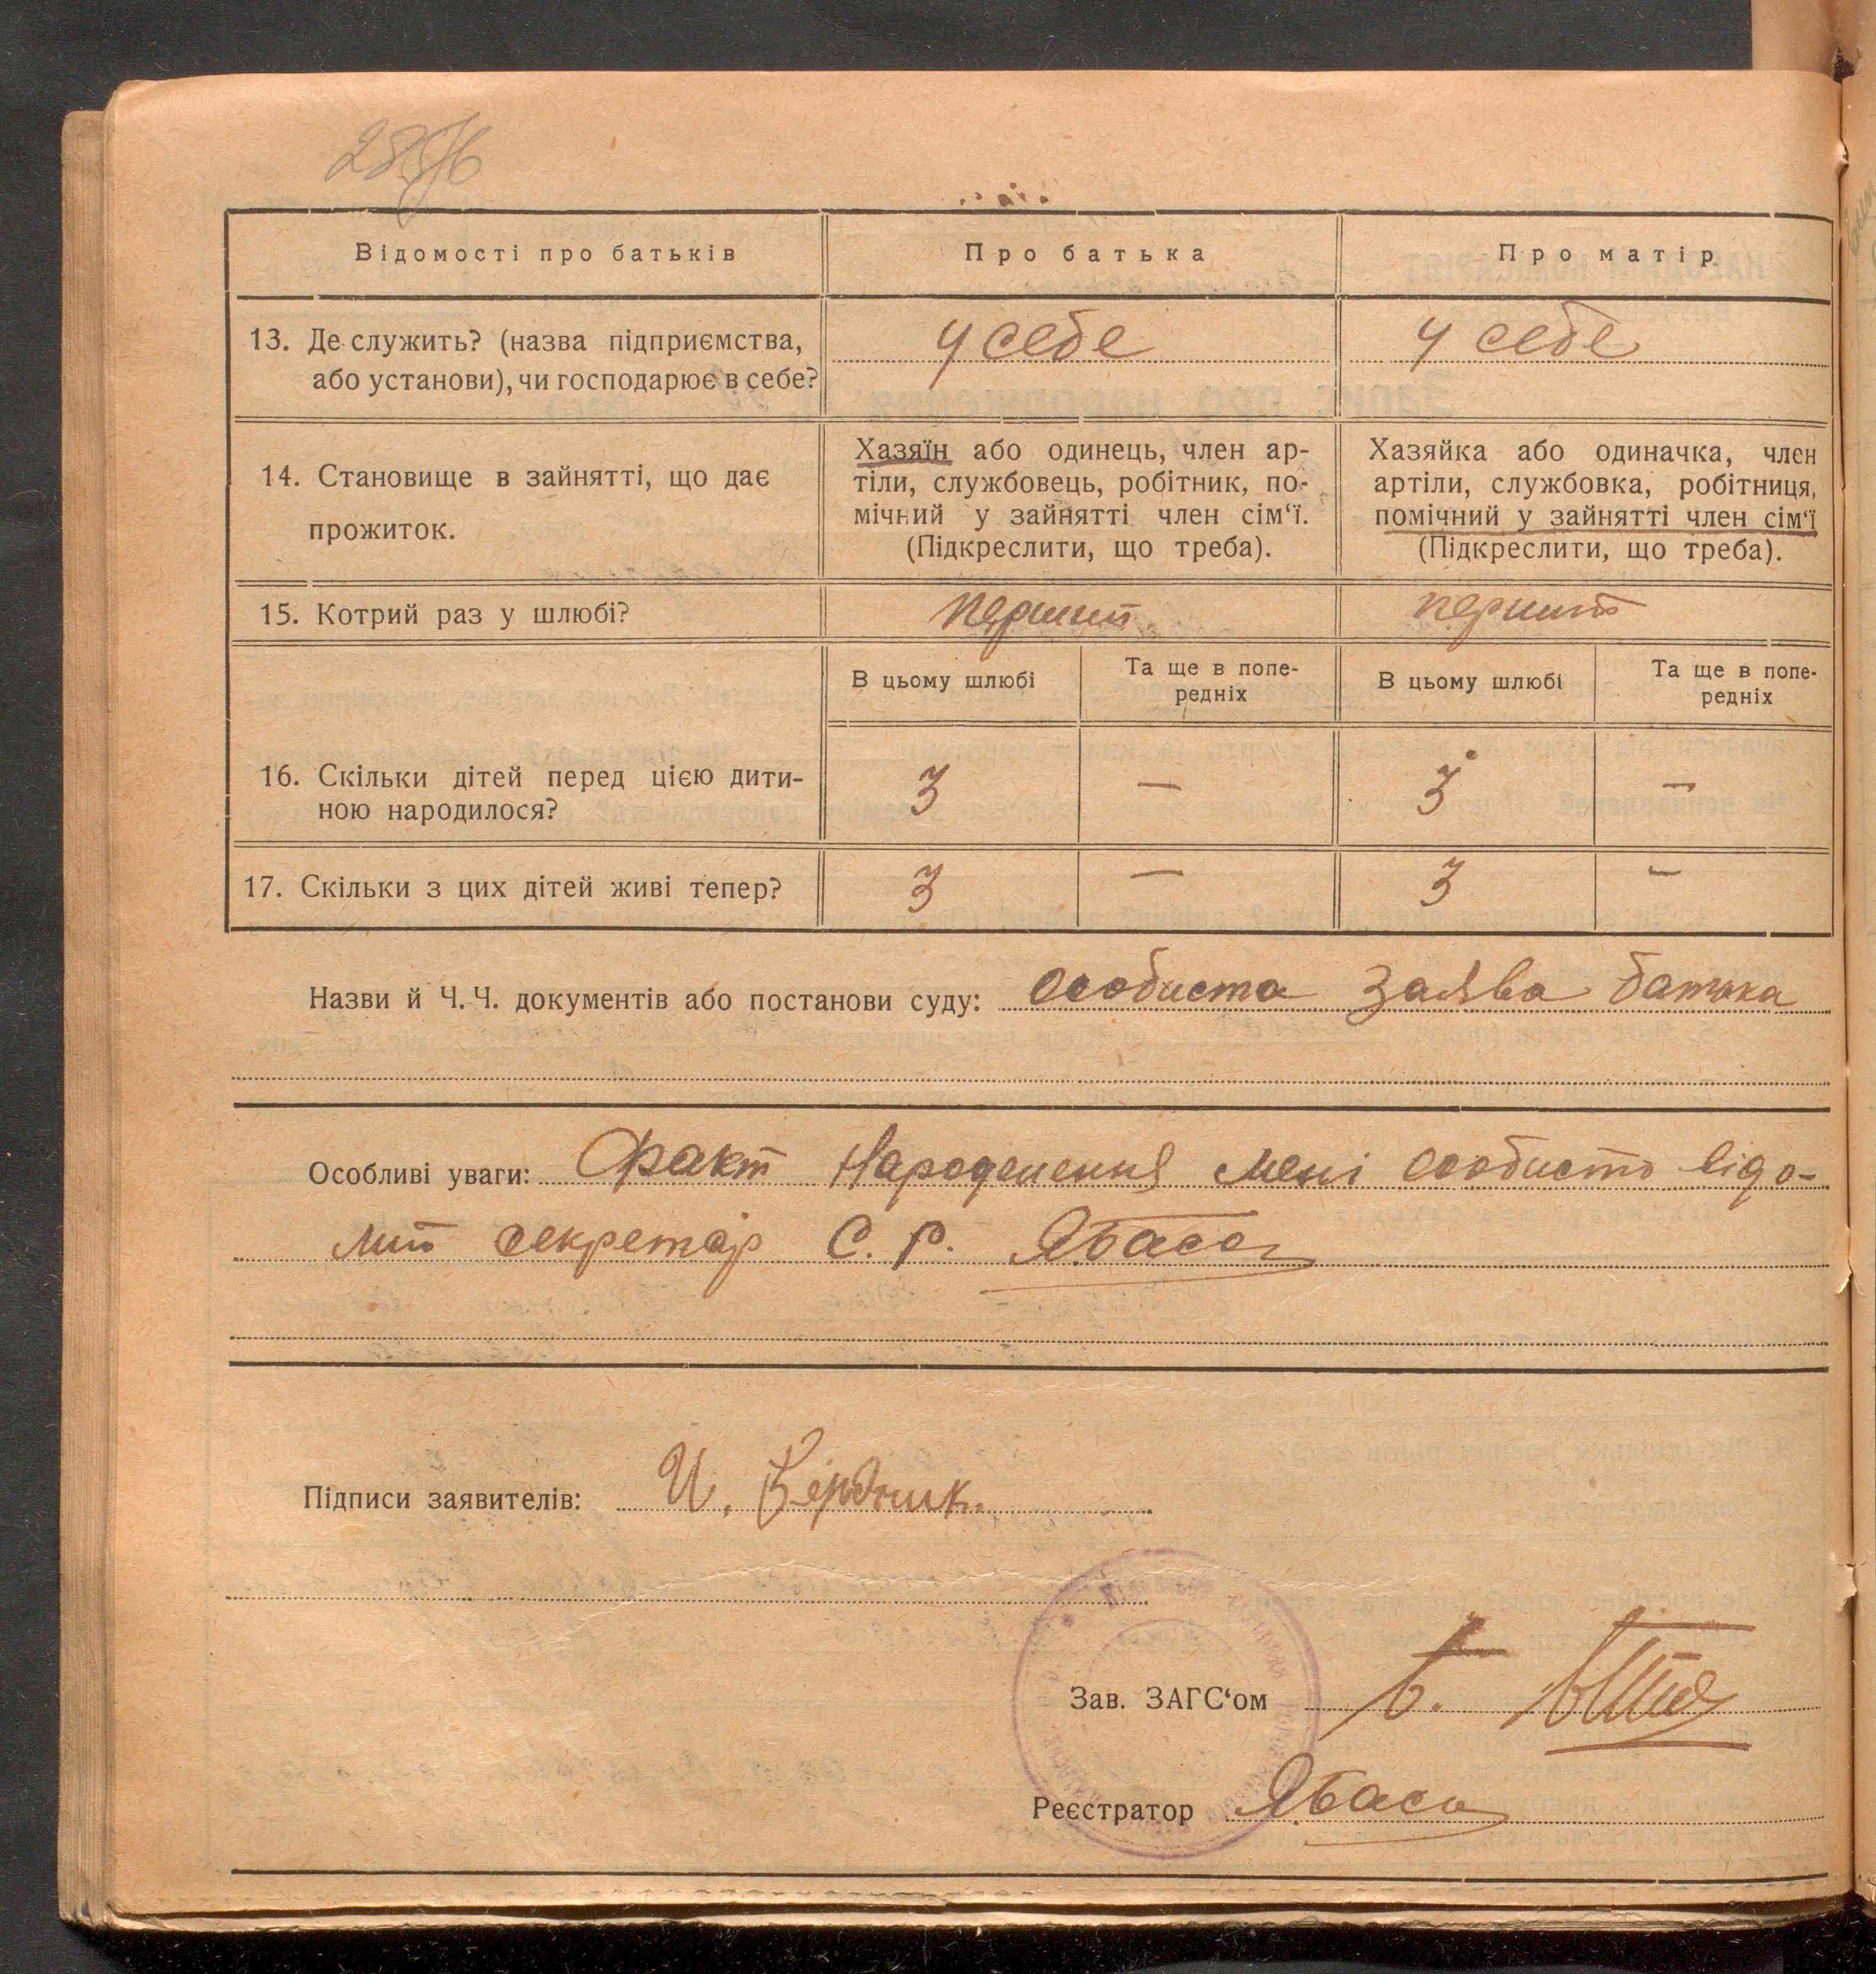 Відомості про батьків
Про батька
Про матір
13. Де служить? (назва підприємства,
або установи), чи господарює в себе?
у себе
у себе
14. Становище в зайнятті, що дає
прожиток.
Хазяїн або одинець, член ар-
тіли, службовець, робітник, по-
мічний у зайнятті член сім‘ї.
(Підкреслити, що треба).
Хазяйка або одиначка, член
артіли, службовка, робітниця,
помічний у зайнятті член сім‘ї
(Підкреслити, що треба).
15. Котрий раз у шлюбі?
перший
перший
В цьому шлюбі
Та ще в попе-
редніх
В цьому шлюбі
Та ще в попе-
редніх
16. Скільки дітей перед цією дити-
ною народилося?
3
—
3
—
17. Скільки з цих дітей живі тепер?
3
—
3
—
Назви й Ч. Ч. документів або постанови суду: особиста заява батька
Особливі уваги: Факт народження мені особисто відо-
мий секретар С. Р.
Підписи заявителів: И.
Зав. ЗАГС‘ом
Реєстратор